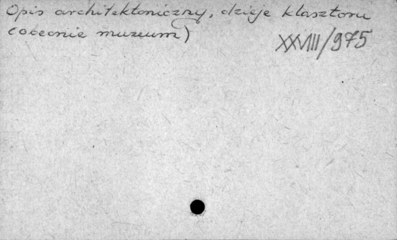 Opis architektoniczny, dzieje klasztoru
(obecnie muzeum)
XXVIII/975